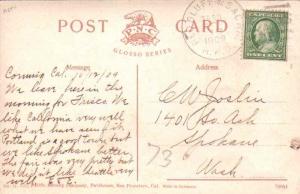 POST CARD
P.N.C.
GLOSSO SERIES
Message
Address
1909
Corning Cal. 10/12/09
We leave here in the
morning for Frisco. We
like California very well
what we have seen of it.
Portland is a good town but
we like Spokane better
The fair was very pretty but
we did it like
well E.E.F.
C W Joslin
1401 So. Ash
Spokane
Wash
73
Publishers, San Francisco, Cal. Made in Germany